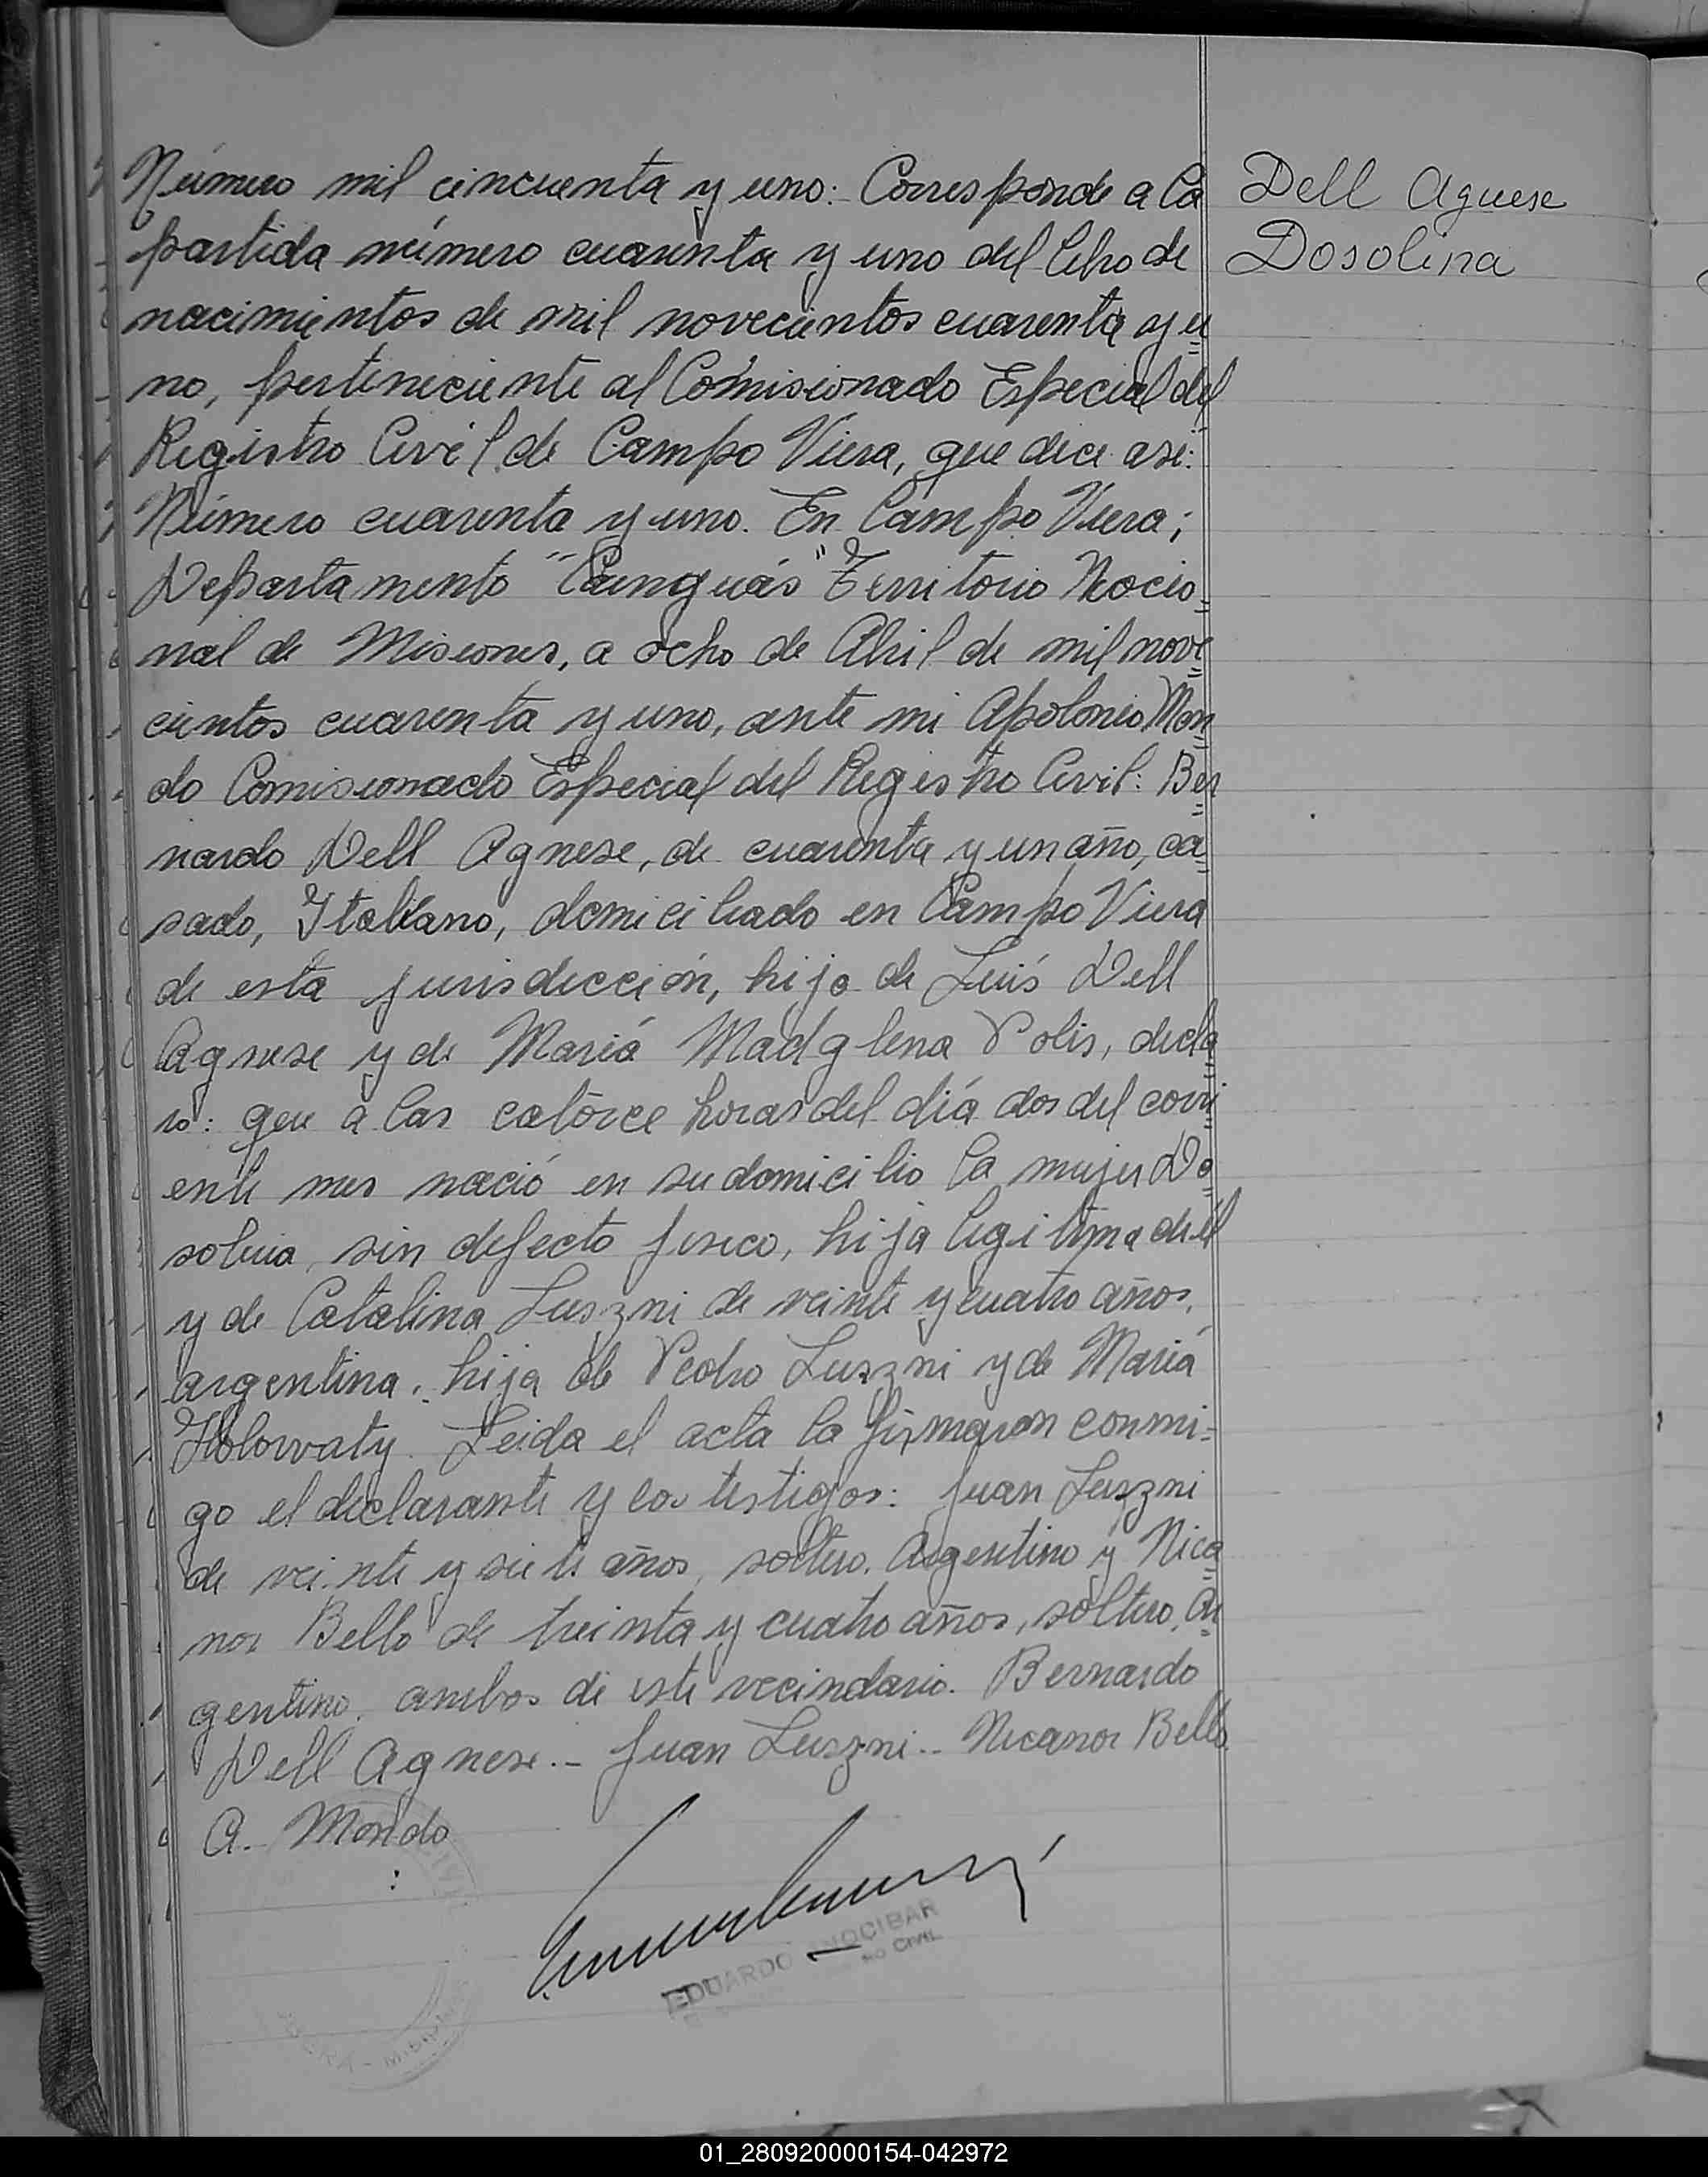 Número mil cincuenta y uno: Corresponde a la
partida número cuarenta y uno del libro de
nacimientos de mil novecientos cuarenta y u
no, perteneciente al Comisionado Especial del
Registro Civil de Campo Viera, que dice asi:
Número cuarenta y uno. En Campo Viera;
Departamento "Cainguás" Territorio Nacio
nal de Misiones, a ocho de Abril de mil nove
cientos cuarenta y uno, ante mi Apolonio Mon
do Comisionado Especial del Registro Civil: Ber
nardo Dell Agnese, de cuarenta y un año, ca
sado, Italiano, domiciliado en Campo Viera
de esta jurisdicción, hijo de Luis Dell
Agnese y de María Madglena Polis, decla
ro: que a las catorce horas del día dos del corri
ente mes nació en su domicilio la mujer Do
solina, sin defecto fisico, hija legitima de él
y de Catalina Luszni de veinte y cuatro años,
argentina, hija de Pedro Luszni y de María
Holowaty. Leida el acta la firmaron conmi-
go el declarante y los testigos: Juan Luszni
de veinte y siete años, soltero, Argentino y Nica
nor Bello de treinta y cuatro años, soltero, Ar
gentino, ambos de este vecindario. Bernardo
Dell Agnese.- Juan Luszni.- Nicanor Bello.
A. Mondo
Dell Agnese
Dosolina
EDUARDO
CIVIL
01_280920000154-042972